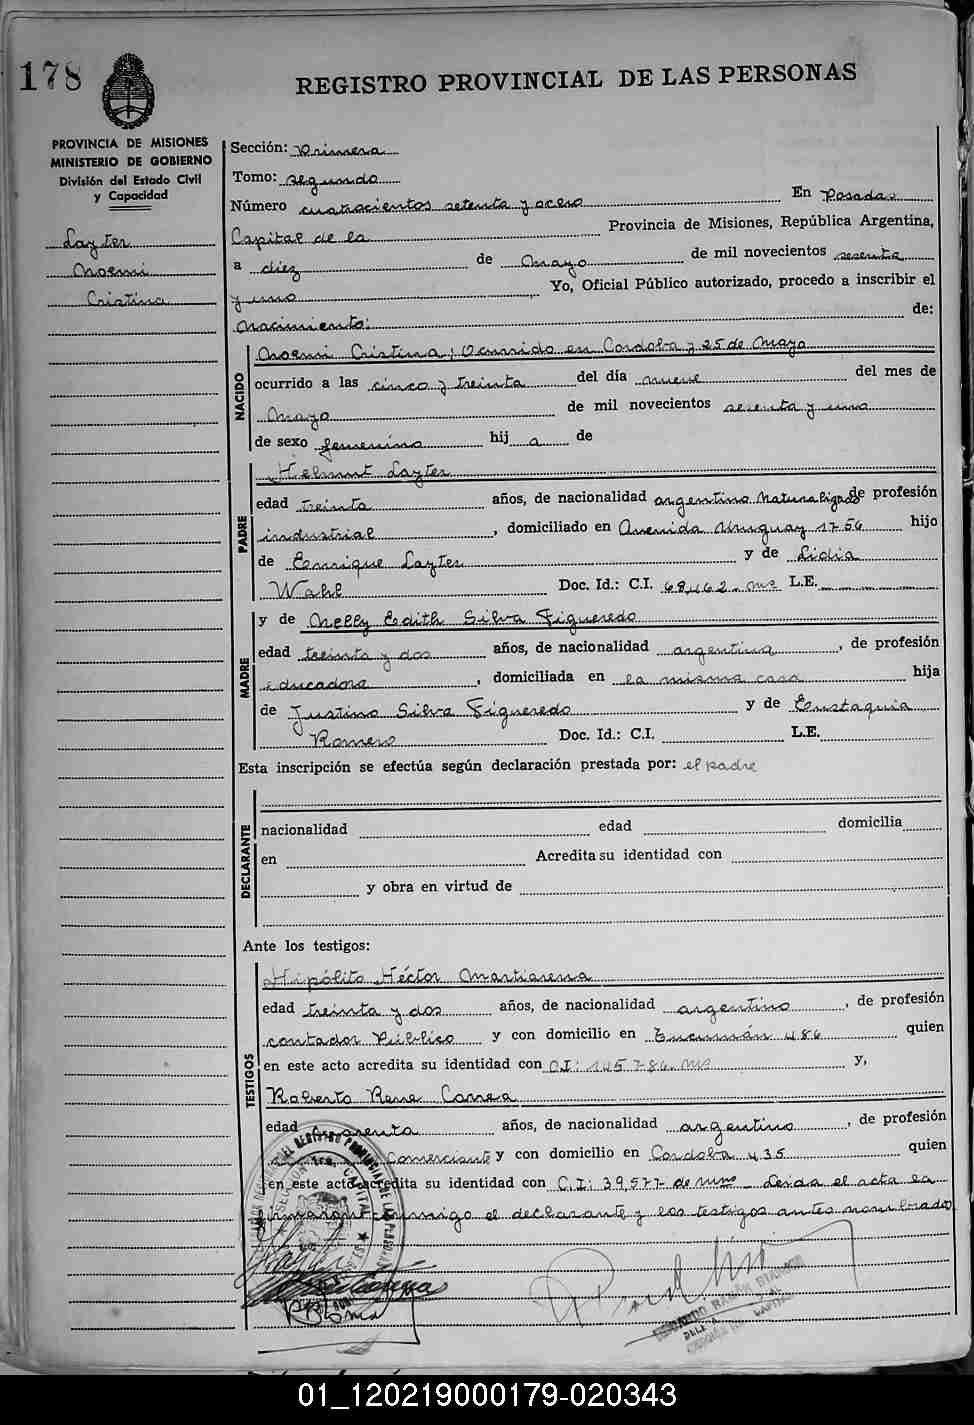 178
REGISTRO PROVINCIAL DE LAS PERSONAS
PROVINCIA DE MISIONES
MINISTERIO DE GOBIERNO
División del Estado Civil
y Capacidad
Layter
Noemi
Cristina
Sección: Primera
Tomo: segundo
Número cuatrocientos setenta y ocho En Posadas
Capital de la Provincia de Misiones, República Argentina,
a diez de Mayo de mil novecientos sesenta
y uno Yo, Oficial Público autorizado, procedo a inscribir el
Nacimiento: de:
NACIDO
Noemi Cristina; Ocurrido en Cordoba y 25 de Mayo
ocurrido a las cinco y treinta del día nueve del mes de
Mayo de mil novecientos sesenta y uno
de sexo femenino hij a de
PADRE
Helmut Layter
edad treinta años, de nacionalidad argentino Naturalizado de profesión
industrial, domiciliado en Avenida Uruguay 1756 hijo
de Enrique Layter y de Lidia
Wahl Doc. Id.: C.I. 68,462. ms L.E.
MADRE
y de Nelly Edith Silva Figueredo
edad treinta y dos años, de nacionalidad argentina, de profesión
educadora, domiciliada en la misma casa hija
de Justino Silva Figueredo y de Eustaquia
Romero Doc. Id.: C.I. L.E.
Esta inscripción se efectúa según declaración prestada por: el padre
DECLARANTE
nacionalidad edad domicilia
en Acredita su identidad con
y obra en virtud de
Ante los testigos:
TESTIGOS
Hipólito Héctor Martiarena
edad treinta y dos años, de nacionalidad argentino, de profesión
contador Público y con domicilio en Tucumán 486 quien
en este acto acredita su identidad con C.I: 145.786. ms y,
Roberto Rene Correa
edad cuarenta años, de nacionalidad argentino, de profesión
Comerciante y con domicilio en Cordoba 435 quien
en este acto acredita su identidad con C.I: 39,577 de mnes Leida el acta la
firmaron conmigo el declarante y los testigos antes nombrados
01_120219000179-020343